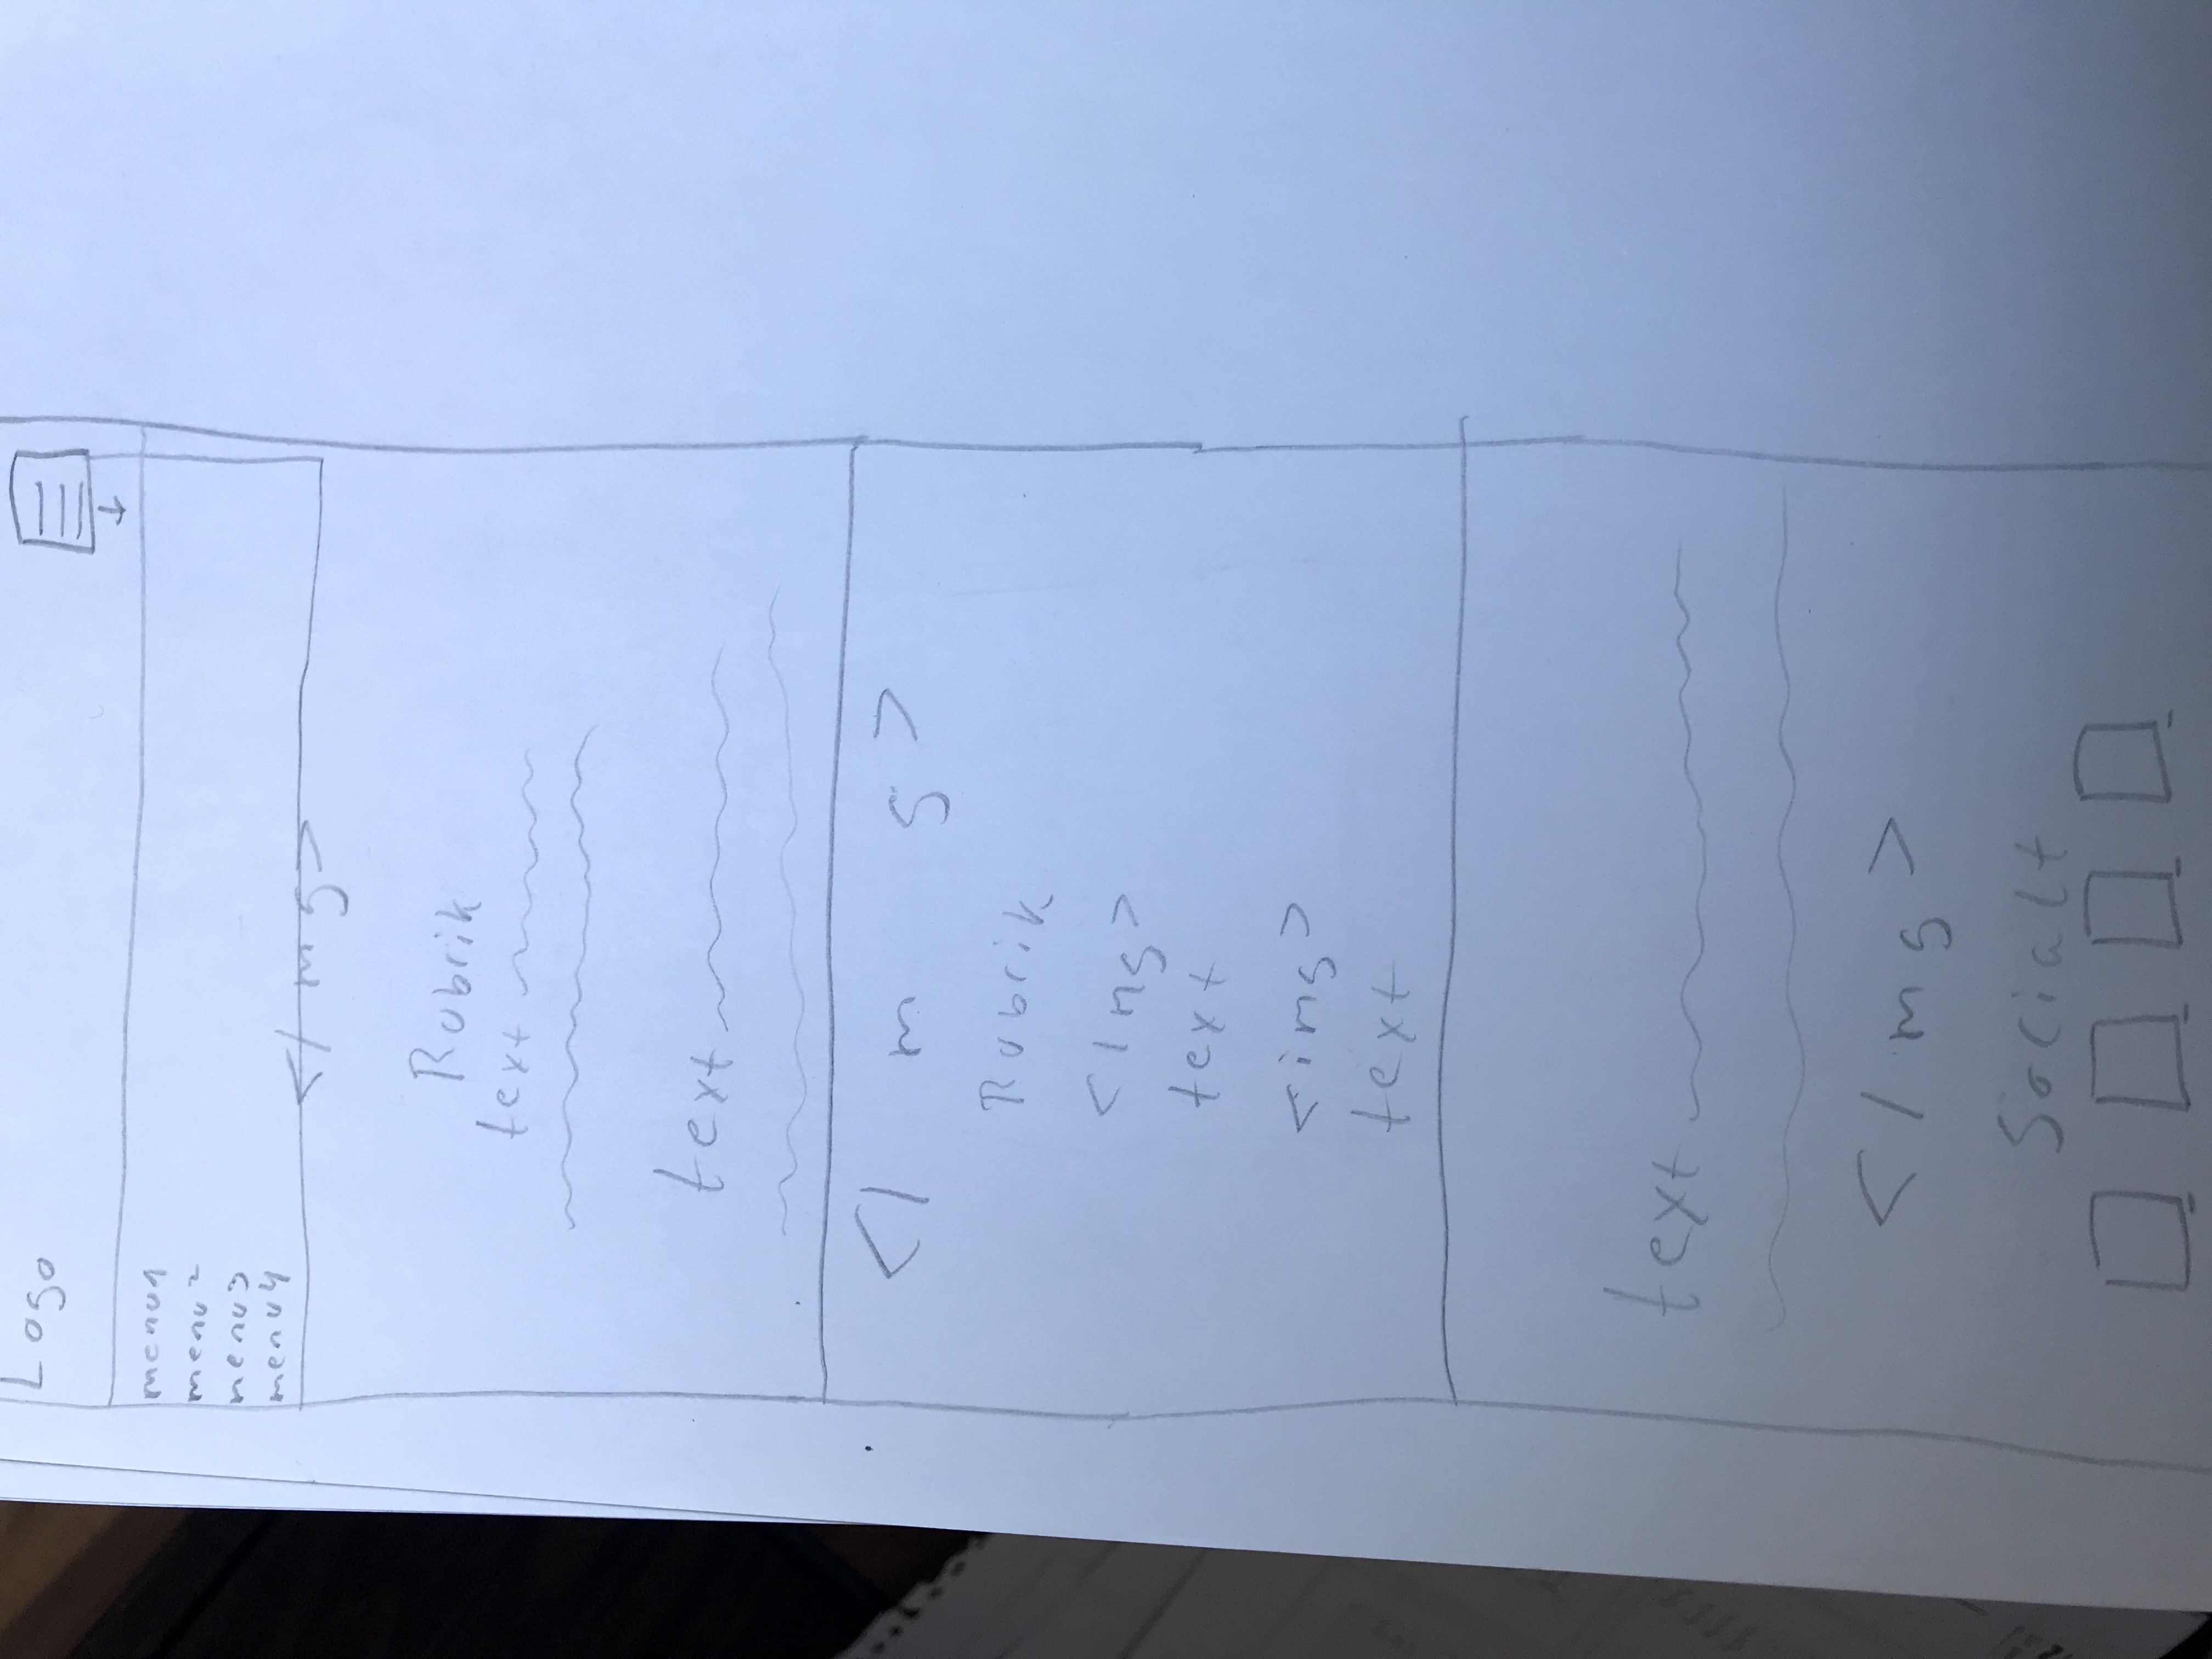 Logo
menu1
menu2
menu3
menu4
<Img>
Rubrik
text
text
<Img>
Rubrik
<Img>
text
<img>
text
text
<Img>
Socialt